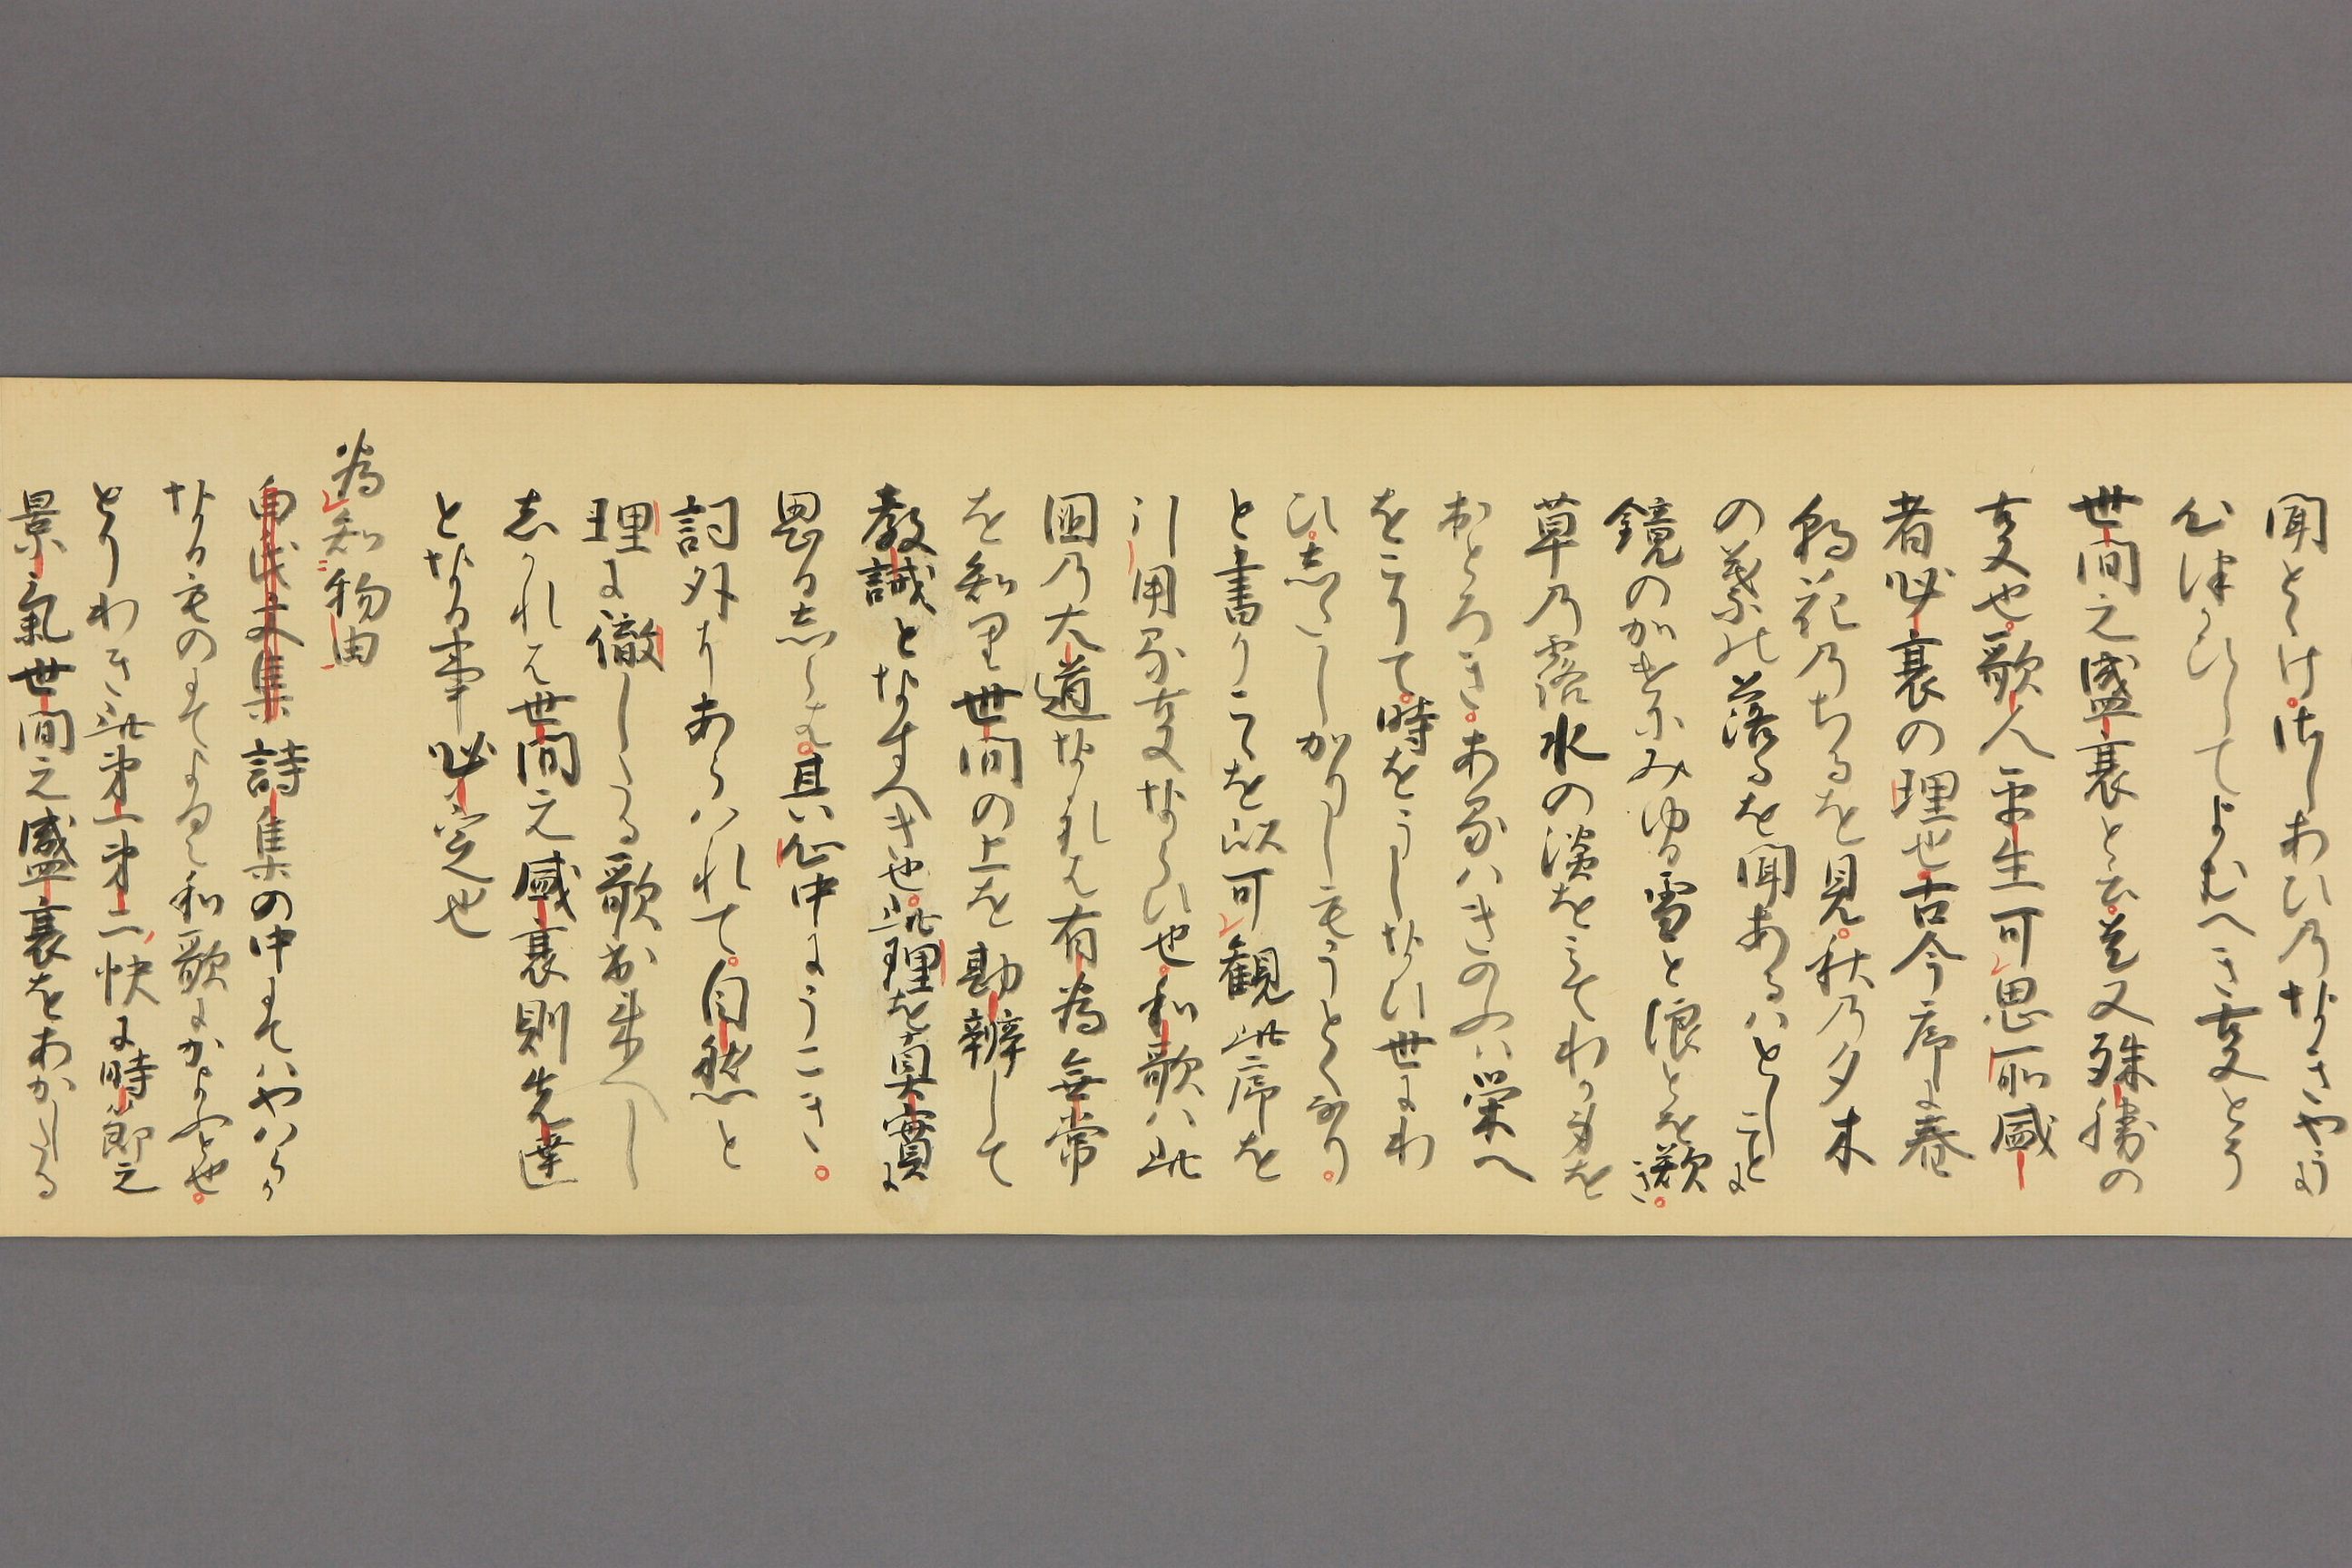 聞とゝけ侍しわひ乃なさけなり
心得かひしてよむへき事とそ
世間之盛衰と云是又殊勝の
事也歌人平生可思所盛
者必衰の理也古今序に春
朝花乃ちるを見秋乃夕木
の葉の落るを聞あるハとしことに
鏡のかけにみゆる雪と浪とを歎
草乃露水の淡をみてわか身を
おとろきあるハきのふハ栄へ
をこりて時をうしなひ世にわ
ひしたしかりしもうとくなり
と書りこれを以可観此序を
引用る事ならひ也和歌ハ此
国乃大道なれは有為無常
を知り世間の上を勘辨して
教誡となすへき也此理を真實に
思る志しを其心中にうこき
詞外にあらハれて自然と
理に徹しゝる歌出来へし
しかれは世間之盛衰則先達
となる事必定也
為知物由
白氏文集詩集の中にてハやハらか
なるものにてよむは和歌にかよふと也
とりわき此第一第二帙に時節之
景氣世間之盛衰をあかしたる